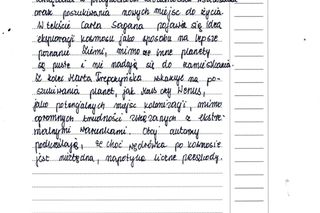 oraz poszukiwania nowych miejsc do życia.
W tekście Carla Sagana pojawia się idea
eksploracji kosmosu jako sposobu na lepsze
poznanie Ziemi, mimo że inne planety
są puste i nie nadają się do zamieszkania.
Z kolei Marta Trepczyńska wskazuje na po-
szukiwania planet, jak Mars czy Wenus,
jako potencjalnych miejsc kolonizacji, mimo
ogromnych trudności związanych z ekstre-
malnymi warunkami. Obaj autorzy
podkreślają, że choć wędrówka po kosmosie
jest niezbędna, napotyka liczne przeszkody.